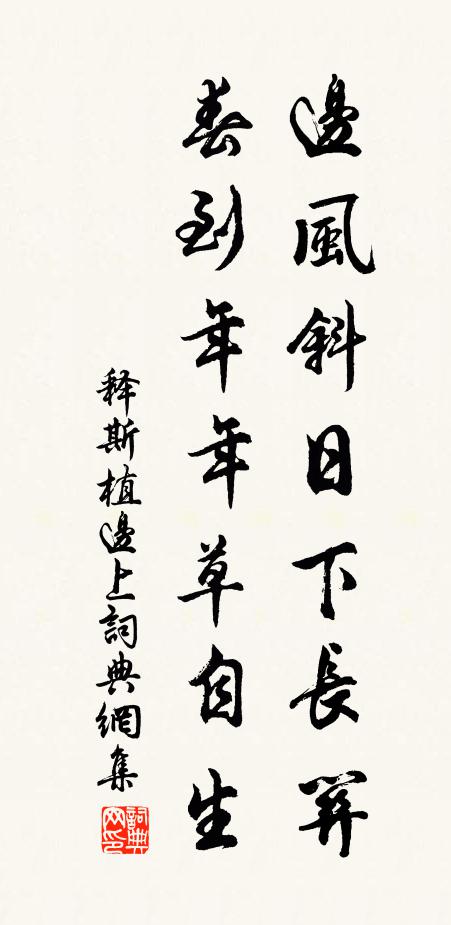 邊風斜日下長關
春到年年草自生
释斯植邊上詞典網集
詞典网印